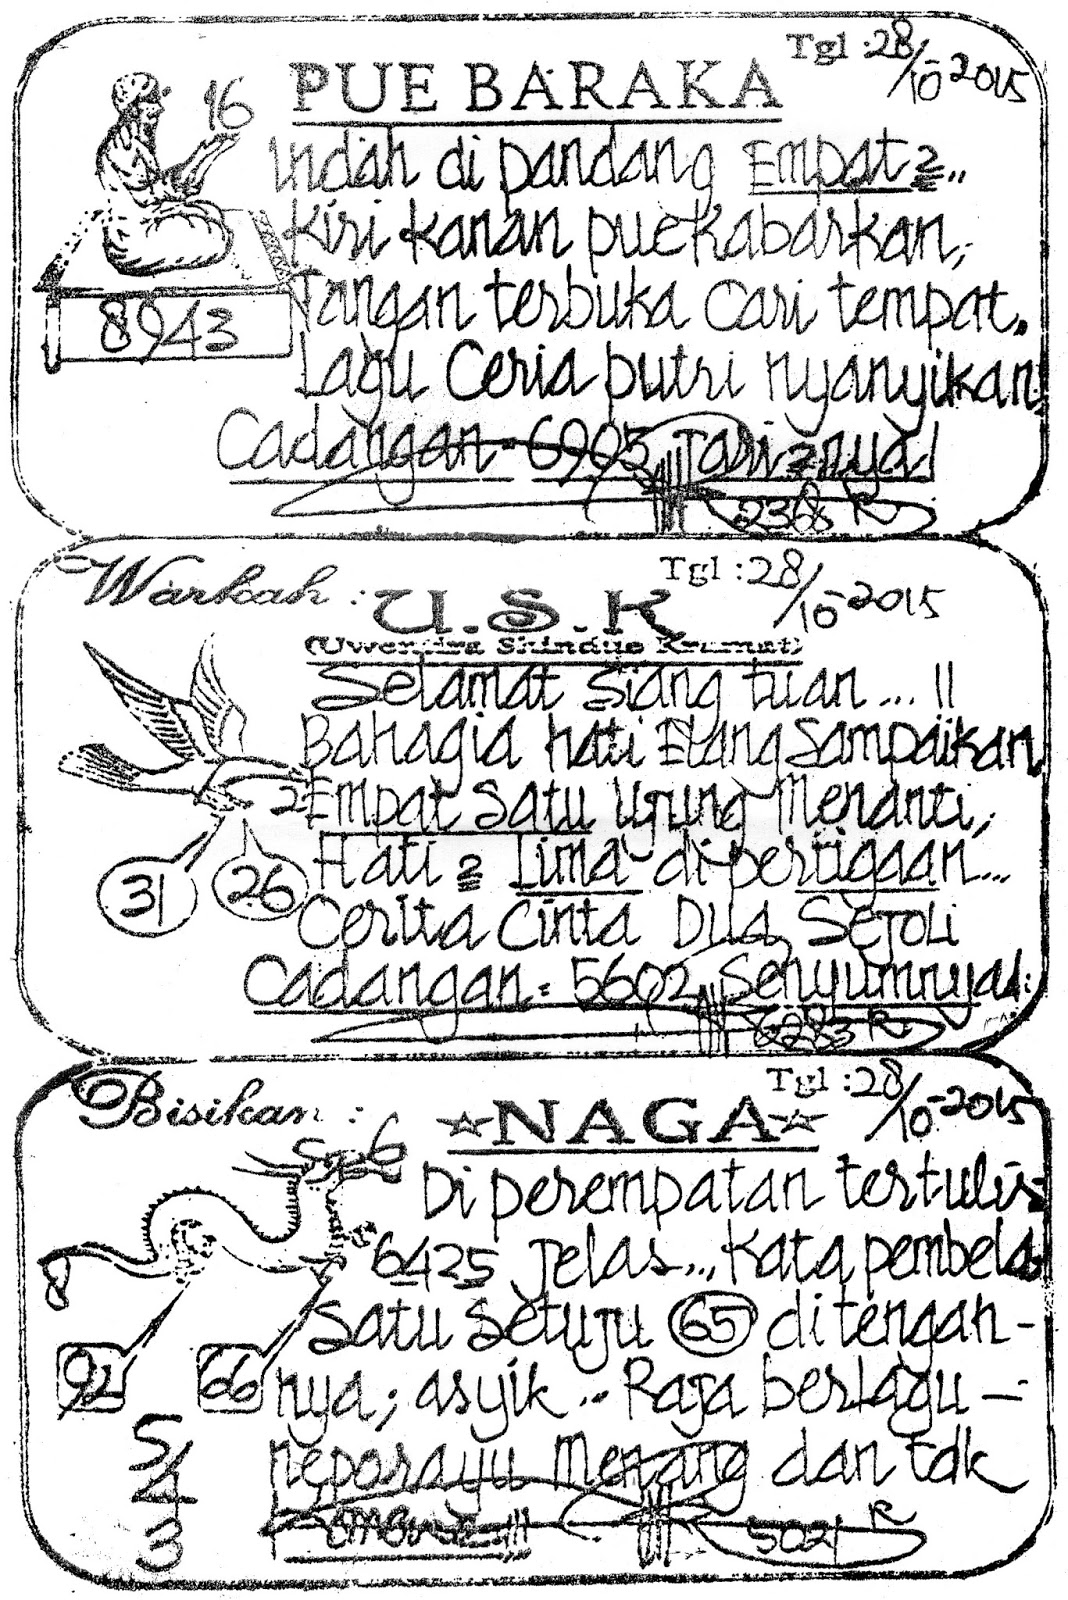 Tgl : 28/10-2015
PUE BARAKA
16
Indah di pandang Empat 2..
Kiri kanan pue kabarkan,
8943
Tangan terbuka cari tempat.
Lagu Ceria putri nyanyikan
Cadangan = 6905 Tari 2 nya!
2368 R
Warkah :
U.S.K
Tgl : 28/10-2015
(Uwentira Shindue Kramat)
Selamat Siang tuan... !!
Bahagia hati Elang Sampaikan
2
Empat Satu Ujung Menanti,
31
26
Hati 2 Lima di pertigaan...
Cerita Cinta Dua SEJOLI
Cadangan = 5602 Senyumnya
8283 R
Bisikan :
☆NAGA☆
Tgl : 28/10-2015
6
Di perempatan tertulis
8
6425 jelas... Kata pembela
Satu Setuju 65 di tengah-
92
66
nya; asyik... Raja berlagu -
5/4
3
neporayu Menang dan tdk
5021 R